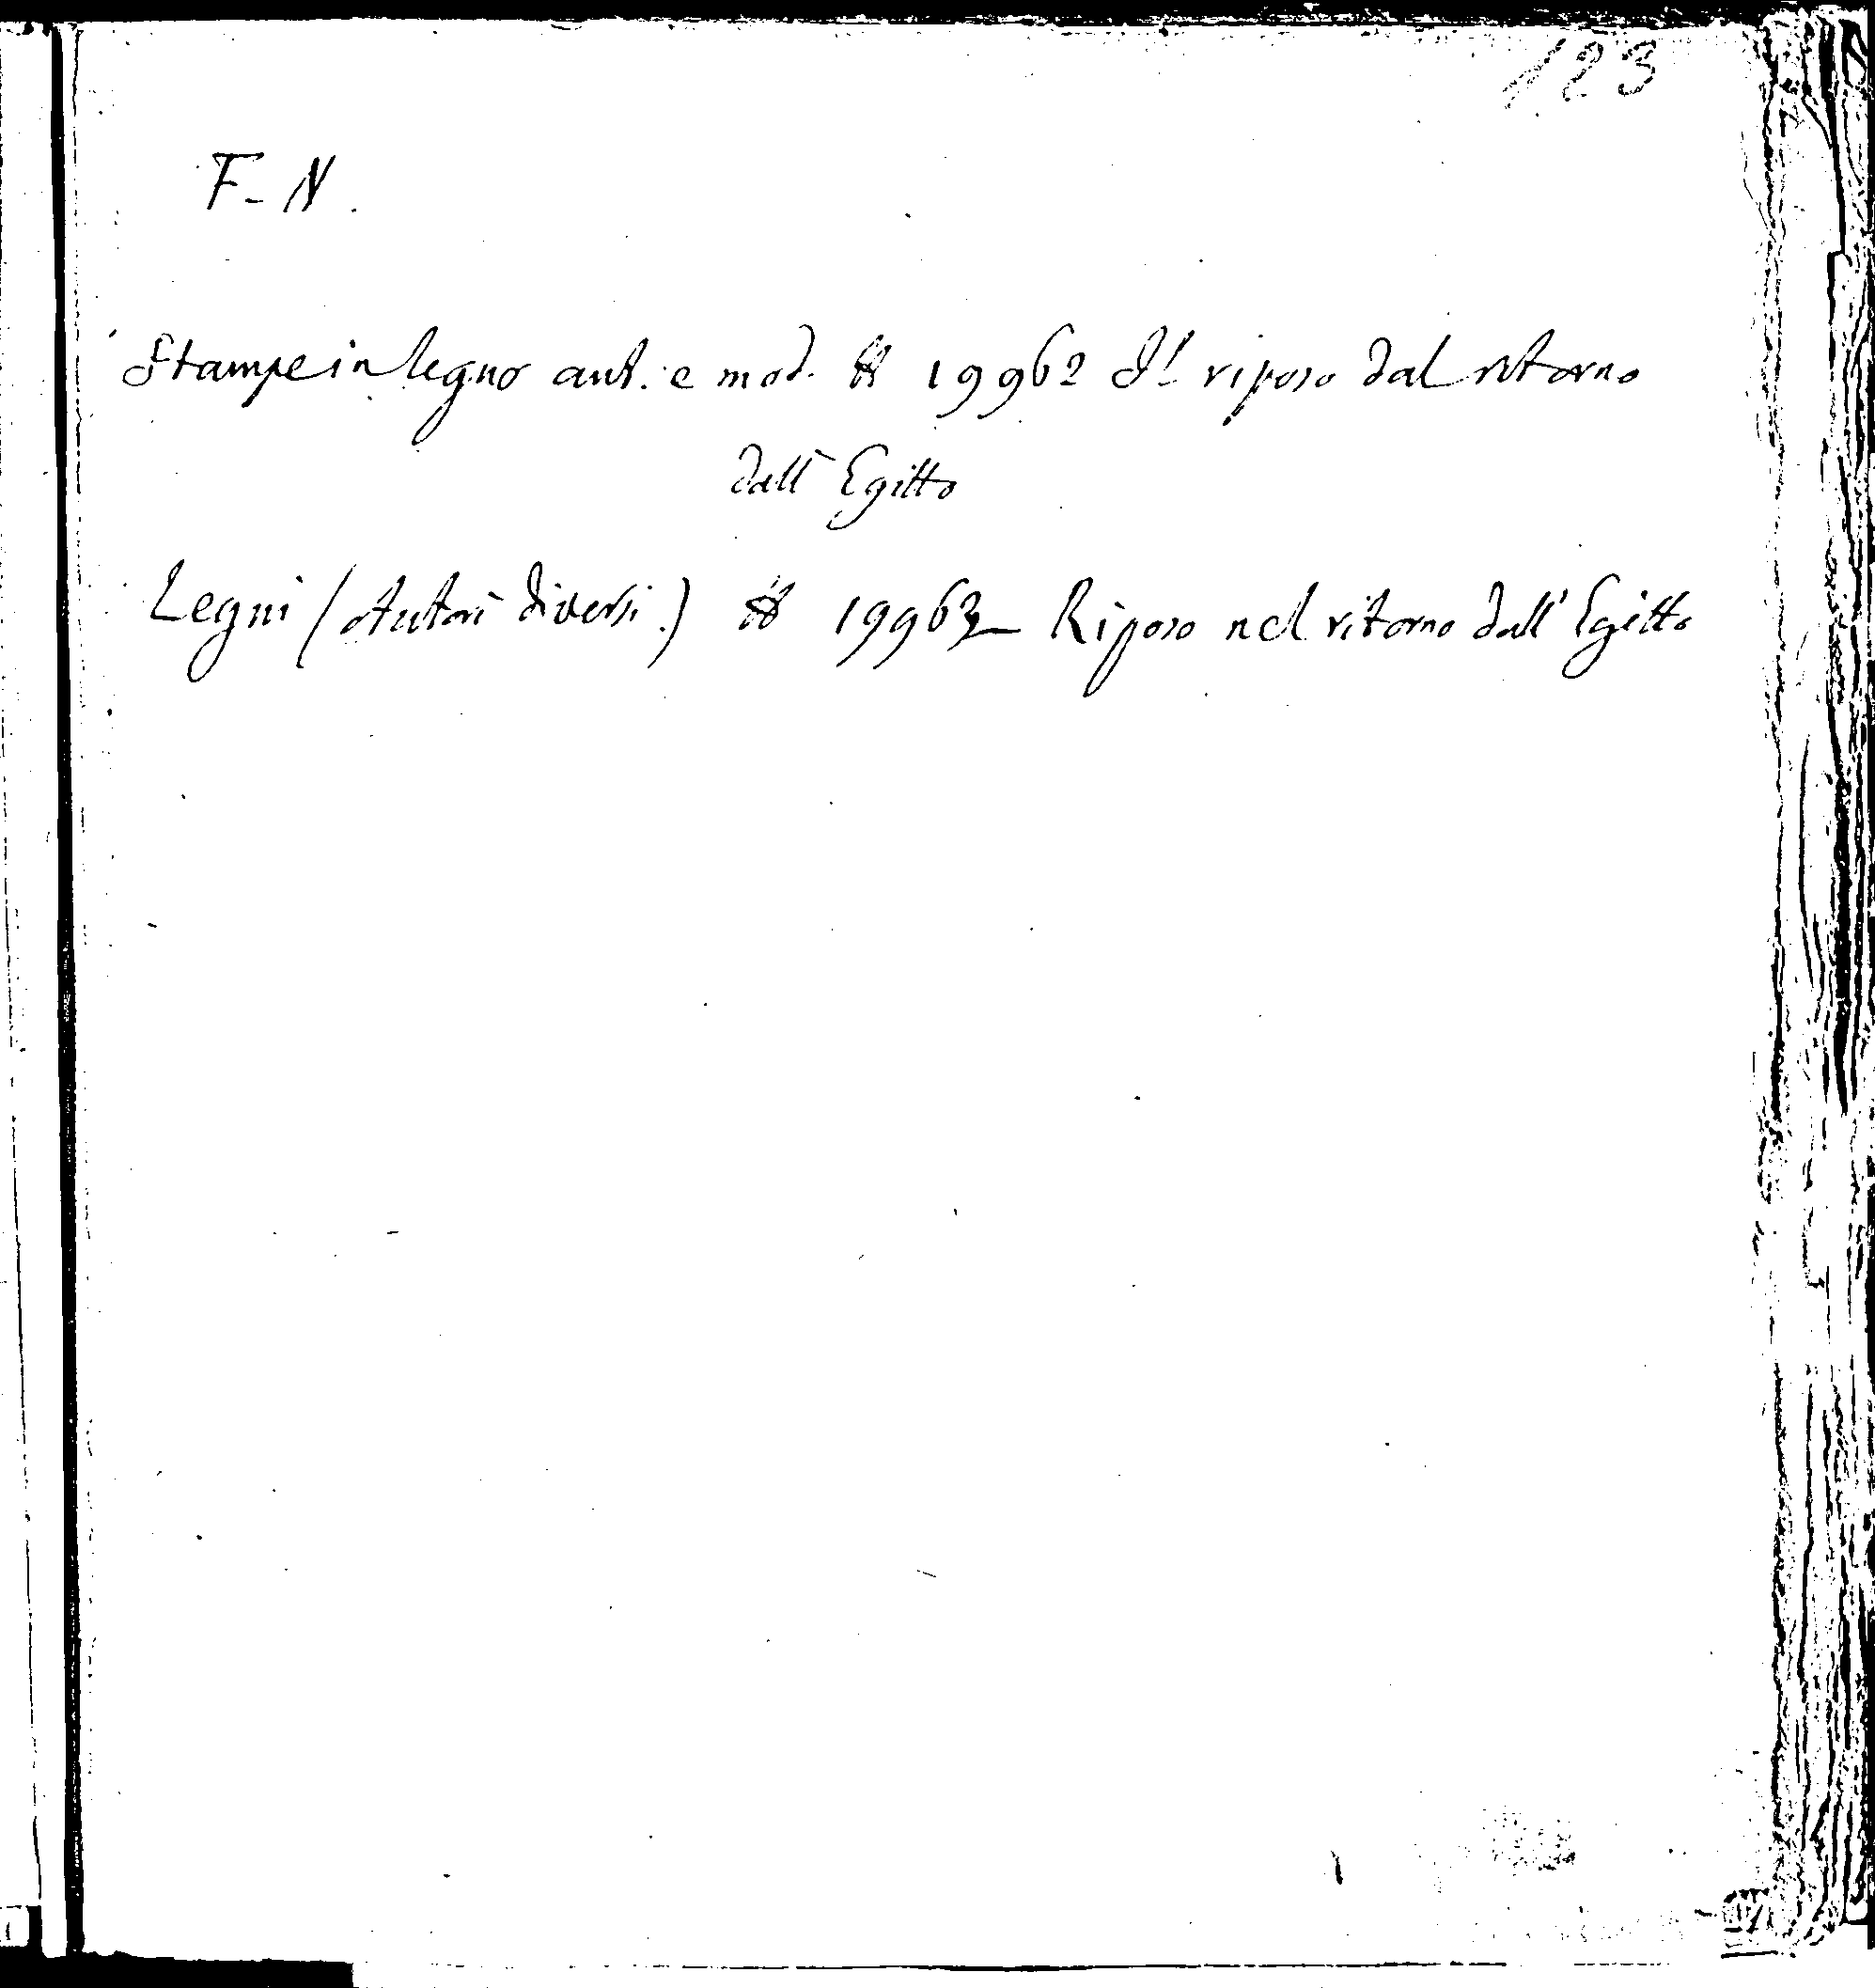 123
F-N.
Stampe in legno ant. e mod. # 19962 Il riposo dal ritorno
dall'Egitto
Legni (Autori diversi.) # 19963 Riposo nel ritorno dall'Egitto